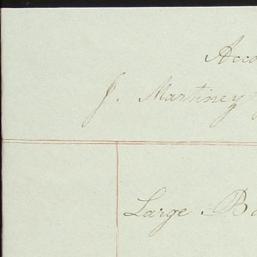 Acco
J. Martiney
Large Ba